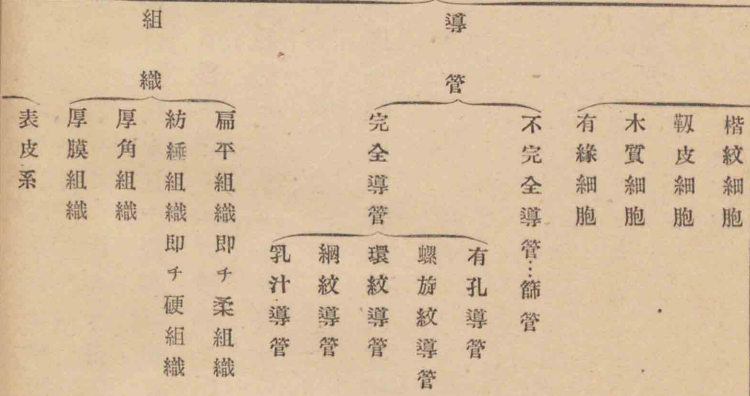 楷紋細胞
靱皮細胞
木質細胞
有緣細胞
導管
不完全導管…篩管
完全導管
有孔導管
螺旋紋導管
環紋導管
網紋導管
乳汁導管
組織
扁平組織即チ柔組織
紡綞組織即チ硬組織
厚角組織
厚膜組織
表皮系